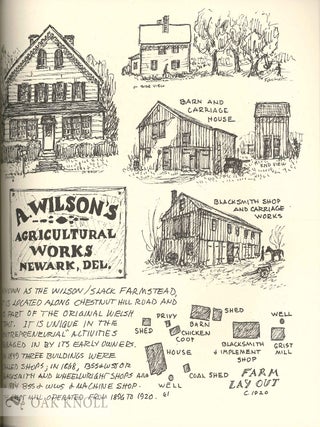 SIDE VIEW
BARN AND
CARRIAGE
HOUSE
END VIEW
BLACKSMITH SHOP
AND CARRIAGE
WORKS
A WILSON'S
AGRICULTURAL
WORKS
NEWARK, DEL.
KNOWN AS THE WILSON/SLACK FARMSTEAD,
IS LOCATED ALONG CHESTNUT HILL ROAD AND
PART OF THE ORIGINAL WELSH
IT IS UNIQUE IN THE
ENTREPRENEURIAL ACTIVITIES
ENGAGED IN BY ITS EARLY OWNERS.
THREE BUILDINGS WERE
CALLED SHOPS; IN 1868,
AND WHEELWRIGHT SHOPS AND
MACHINE SHOP.
MILL OPERATED FROM 1896 TO 1920.
PRIVY
SHED
BARN
CHICKEN
COOP
SHED
WELL
BLACKSMITH
& IMPLEMENT
SHOP
GRIST
MILL
HOUSE
COAL SHED
WELL
FARM
LAY OUT
C.1920
61
© OAK KNOLL